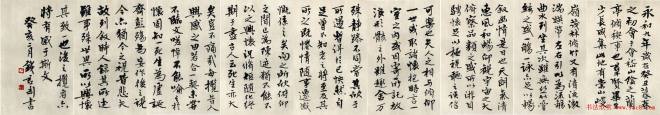 永和九年歲在癸丑暮
春之初會于會稽山陰之蘭
亭脩禊事也群賢畢至
少長咸集此地有崇山峻
嶺茂林脩竹又有清流激
湍映帶左右引以為流觴
曲水列坐其次雖無絲竹管
弦之盛一觴一詠亦足以暢
叙幽情是日也天朗氣清
惠風和暢仰觀宇宙之大
俯察品類之盛所以遊目騁
懷足以極視聽之娛信
可樂也夫人之相與俯仰
一世或取諸懷抱晤言一
室之內或因寄所託放浪
形骸之外雖趣舍萬
殊靜躁不同當其欣於
所遇暫得於己快然自
足曾不知老之將至及其
所之既倦情隨事遷感
慨係之矣向之所欣俯仰
之間已為陳迹猶不能不
以之興懷況脩短隨化終
期於盡古人云死生亦大
矣豈不痛哉每攬昔人
興感之由若合一契未嘗
不臨文嗟悼不能喻之
於懷固知一死生為虛誕
齊彭殤為妄作後之視
今亦猶今之視昔悲夫故
列叙時人錄其所述
雖世殊事異所以興懷
其致一也後之攬者亦
將有感於斯文
癸亥二月 書